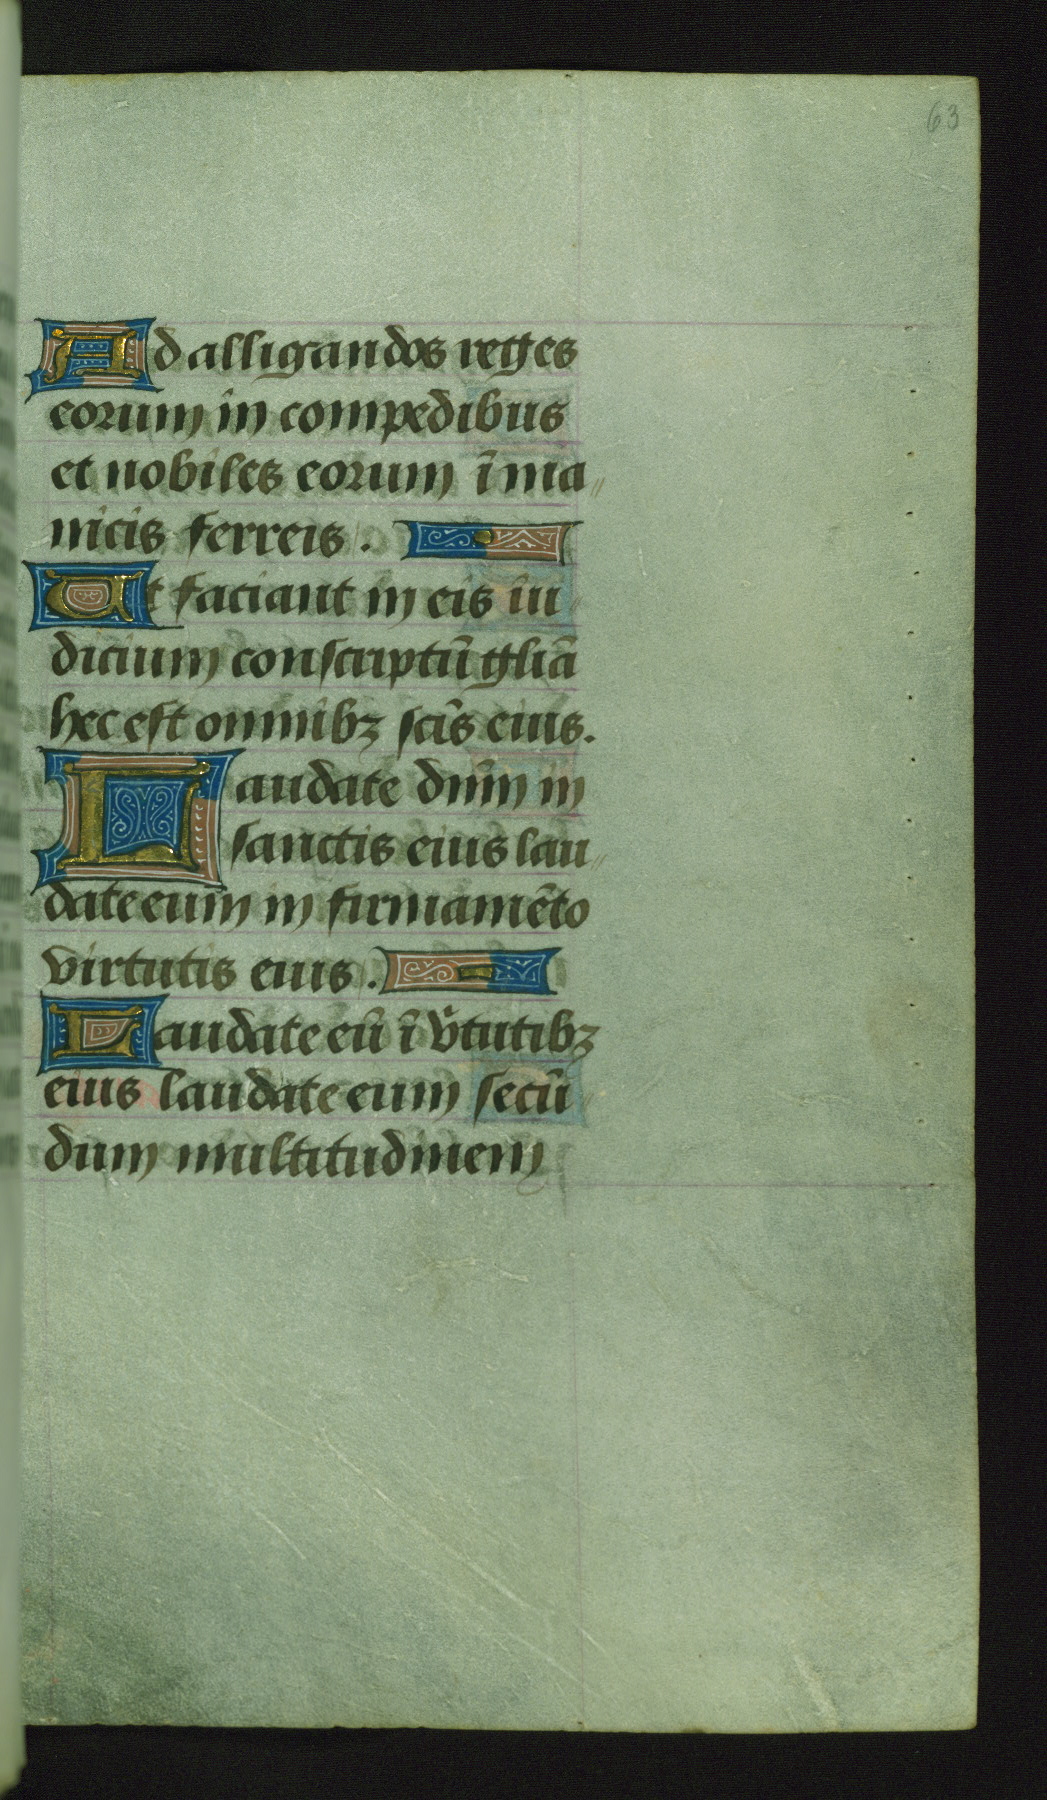 63
Ad alligandos reges
eorum in compedibus
et nobiles eorum ī ma〃
nicis ferreis.
Ut faciant in eis iu
dicium conscriptū gliā
hec est omnibꝫ scīs eius.
Laudate dnīm in
sanctis eius lau〃
date eum in firmamēto
virtutis eius.
Laudate eū ī v̓tutibꝫ
eius laudate eum secū
dum multitudinem